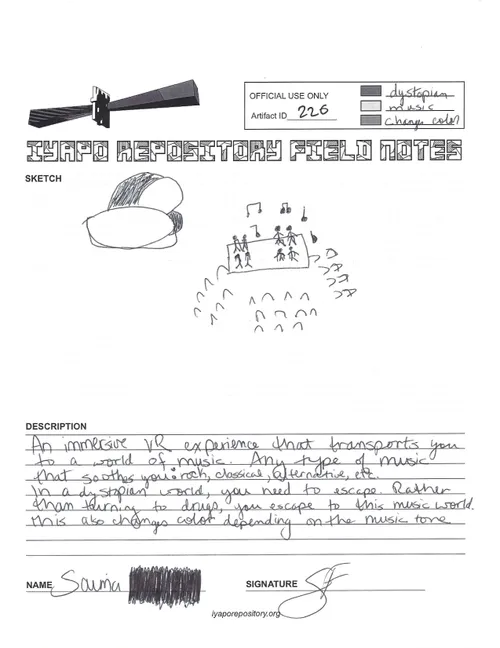 OFFICIAL USE ONLY
Artifact ID 226
dystopian
music
change color
IYAPO REPOSITORY FIELD NOTES
SKETCH
DESCRIPTION
An immersive VR experience that transports you
to a world of music. Any type of music
that soothes you: rock, classical, alternative, etc.
In a dystopian world, you need to escape. Rather
than turning to drugs, you escape to this music world.
this also changes color depending on the music tone
NAME Saima
SIGNATURE
iyaporepository.org